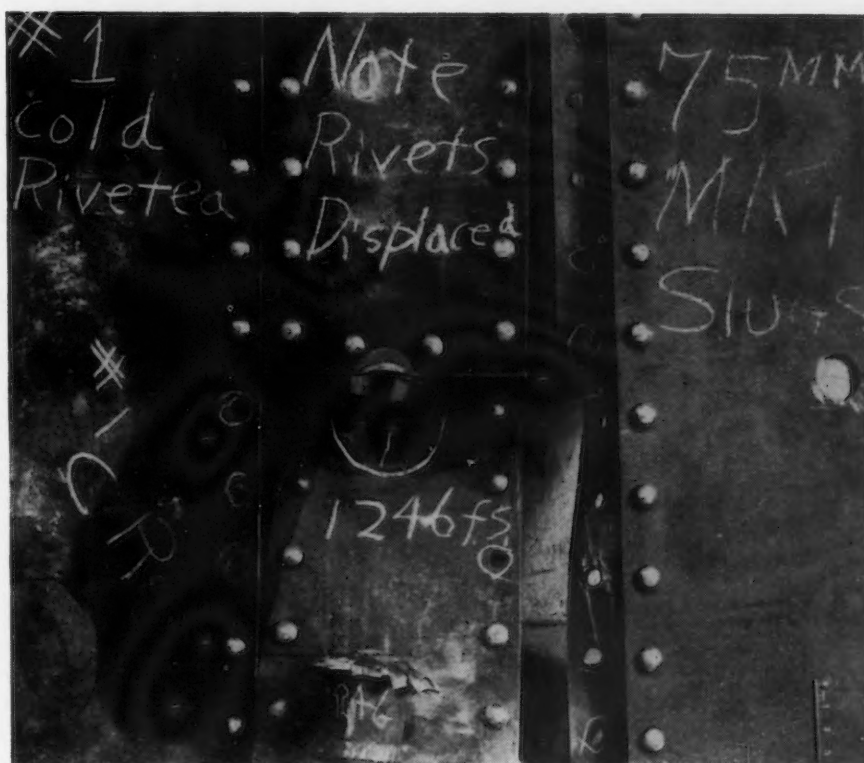 #1
Cold
Riveted
Note
Rivets
Displaced
75MM
MK1
Slugs
#1
C
R
1
1246fs